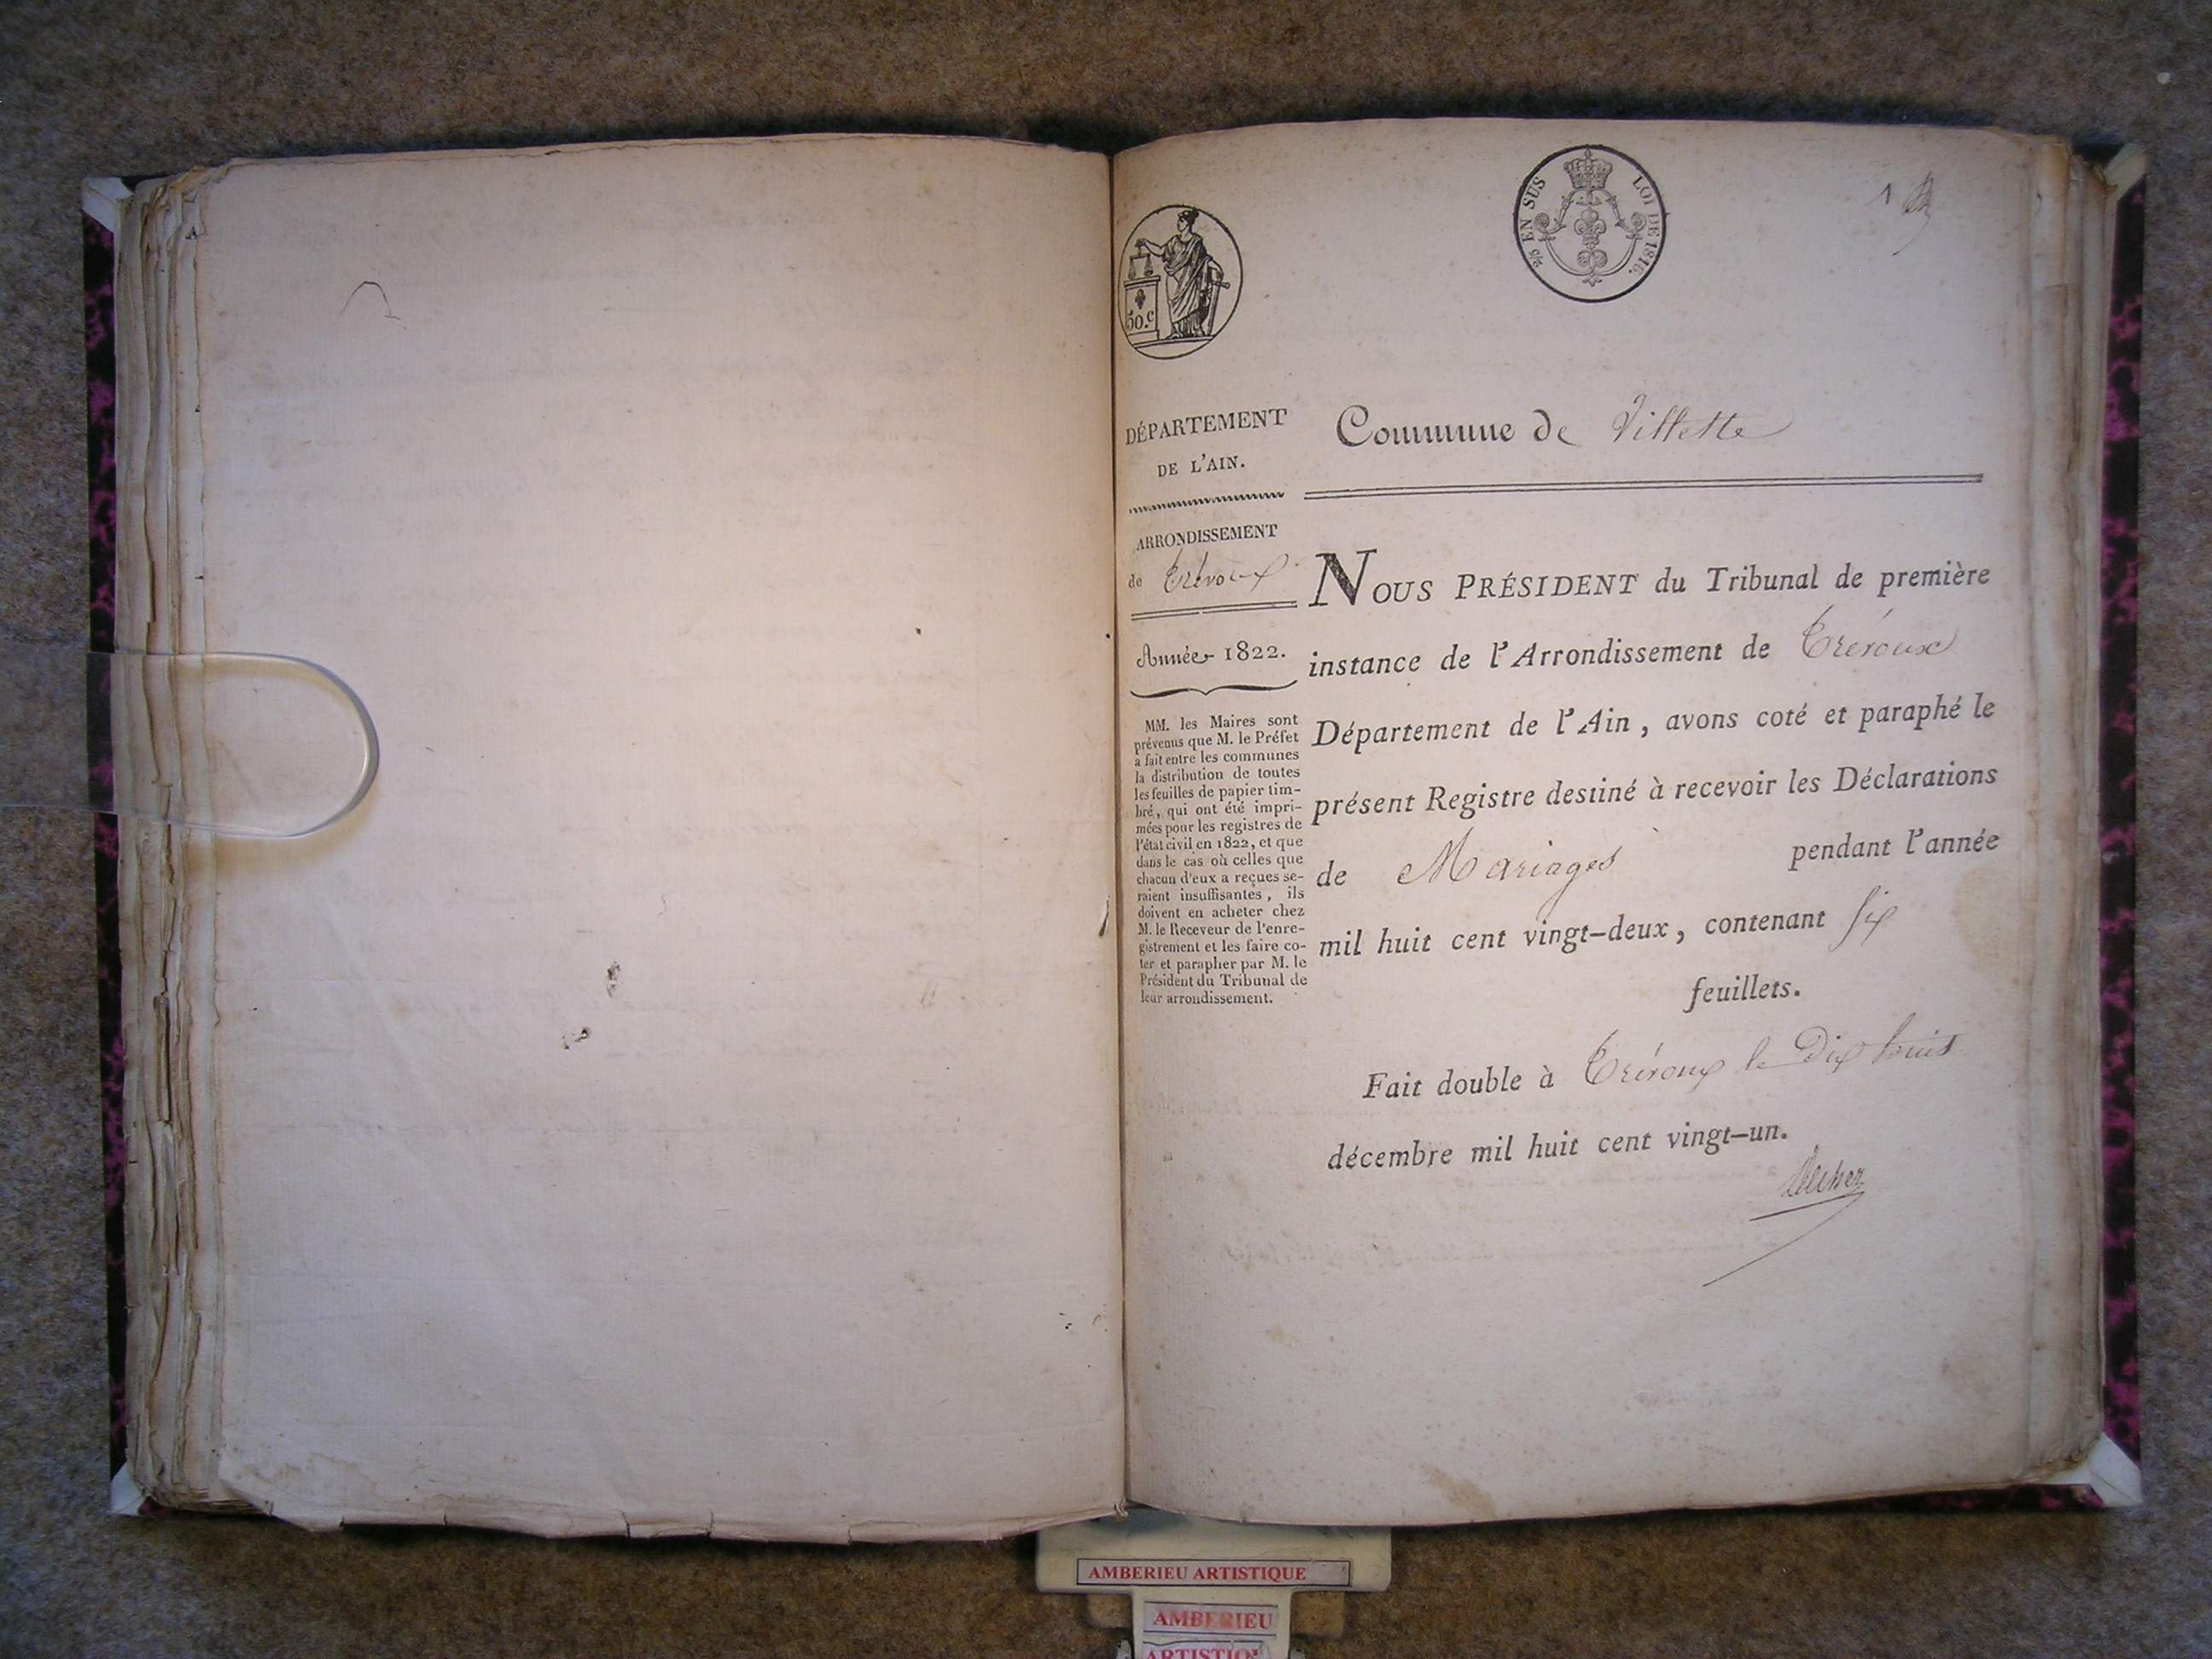 2/5 EN SUS LOI DE 1816.
1
50.c
Commune de Villette
DÉPARTEMENT
DE L'AIN.
ARRONDISSEMENT
de Trévoux
Année 1822.
MM. les Maires sont
prévenus que M. le Préfet
a fait entre les communes
la distribution de toutes
les feuilles de papier tim-
bré, qui ont été impri-
mées pour les registres de
l'état civil en 1822, et que
dans le cas où celles que
chacun d'eux a reçues se-
raient insuffisantes, ils
doivent en acheter chez
M. le Receveur de l'enre-
gistrement et les faire co-
ter et parapher par M. le
Président du Tribunal de
leur arrondissement.
NOUS PRÉSIDENT du Tribunal de première
instance de l'Arrondissement de Trévoux
Département de l'Ain, avons coté et paraphé le
présent Registre destiné à recevoir les Déclarations
de Mariages pendant l'année
mil huit cent vingt-deux, contenant six
feuillets.
Fait double à Trévoux le Dix huit
décembre mil huit cent vingt-un.
AMBERIEU ARTISTIQUE
AMBERIEU